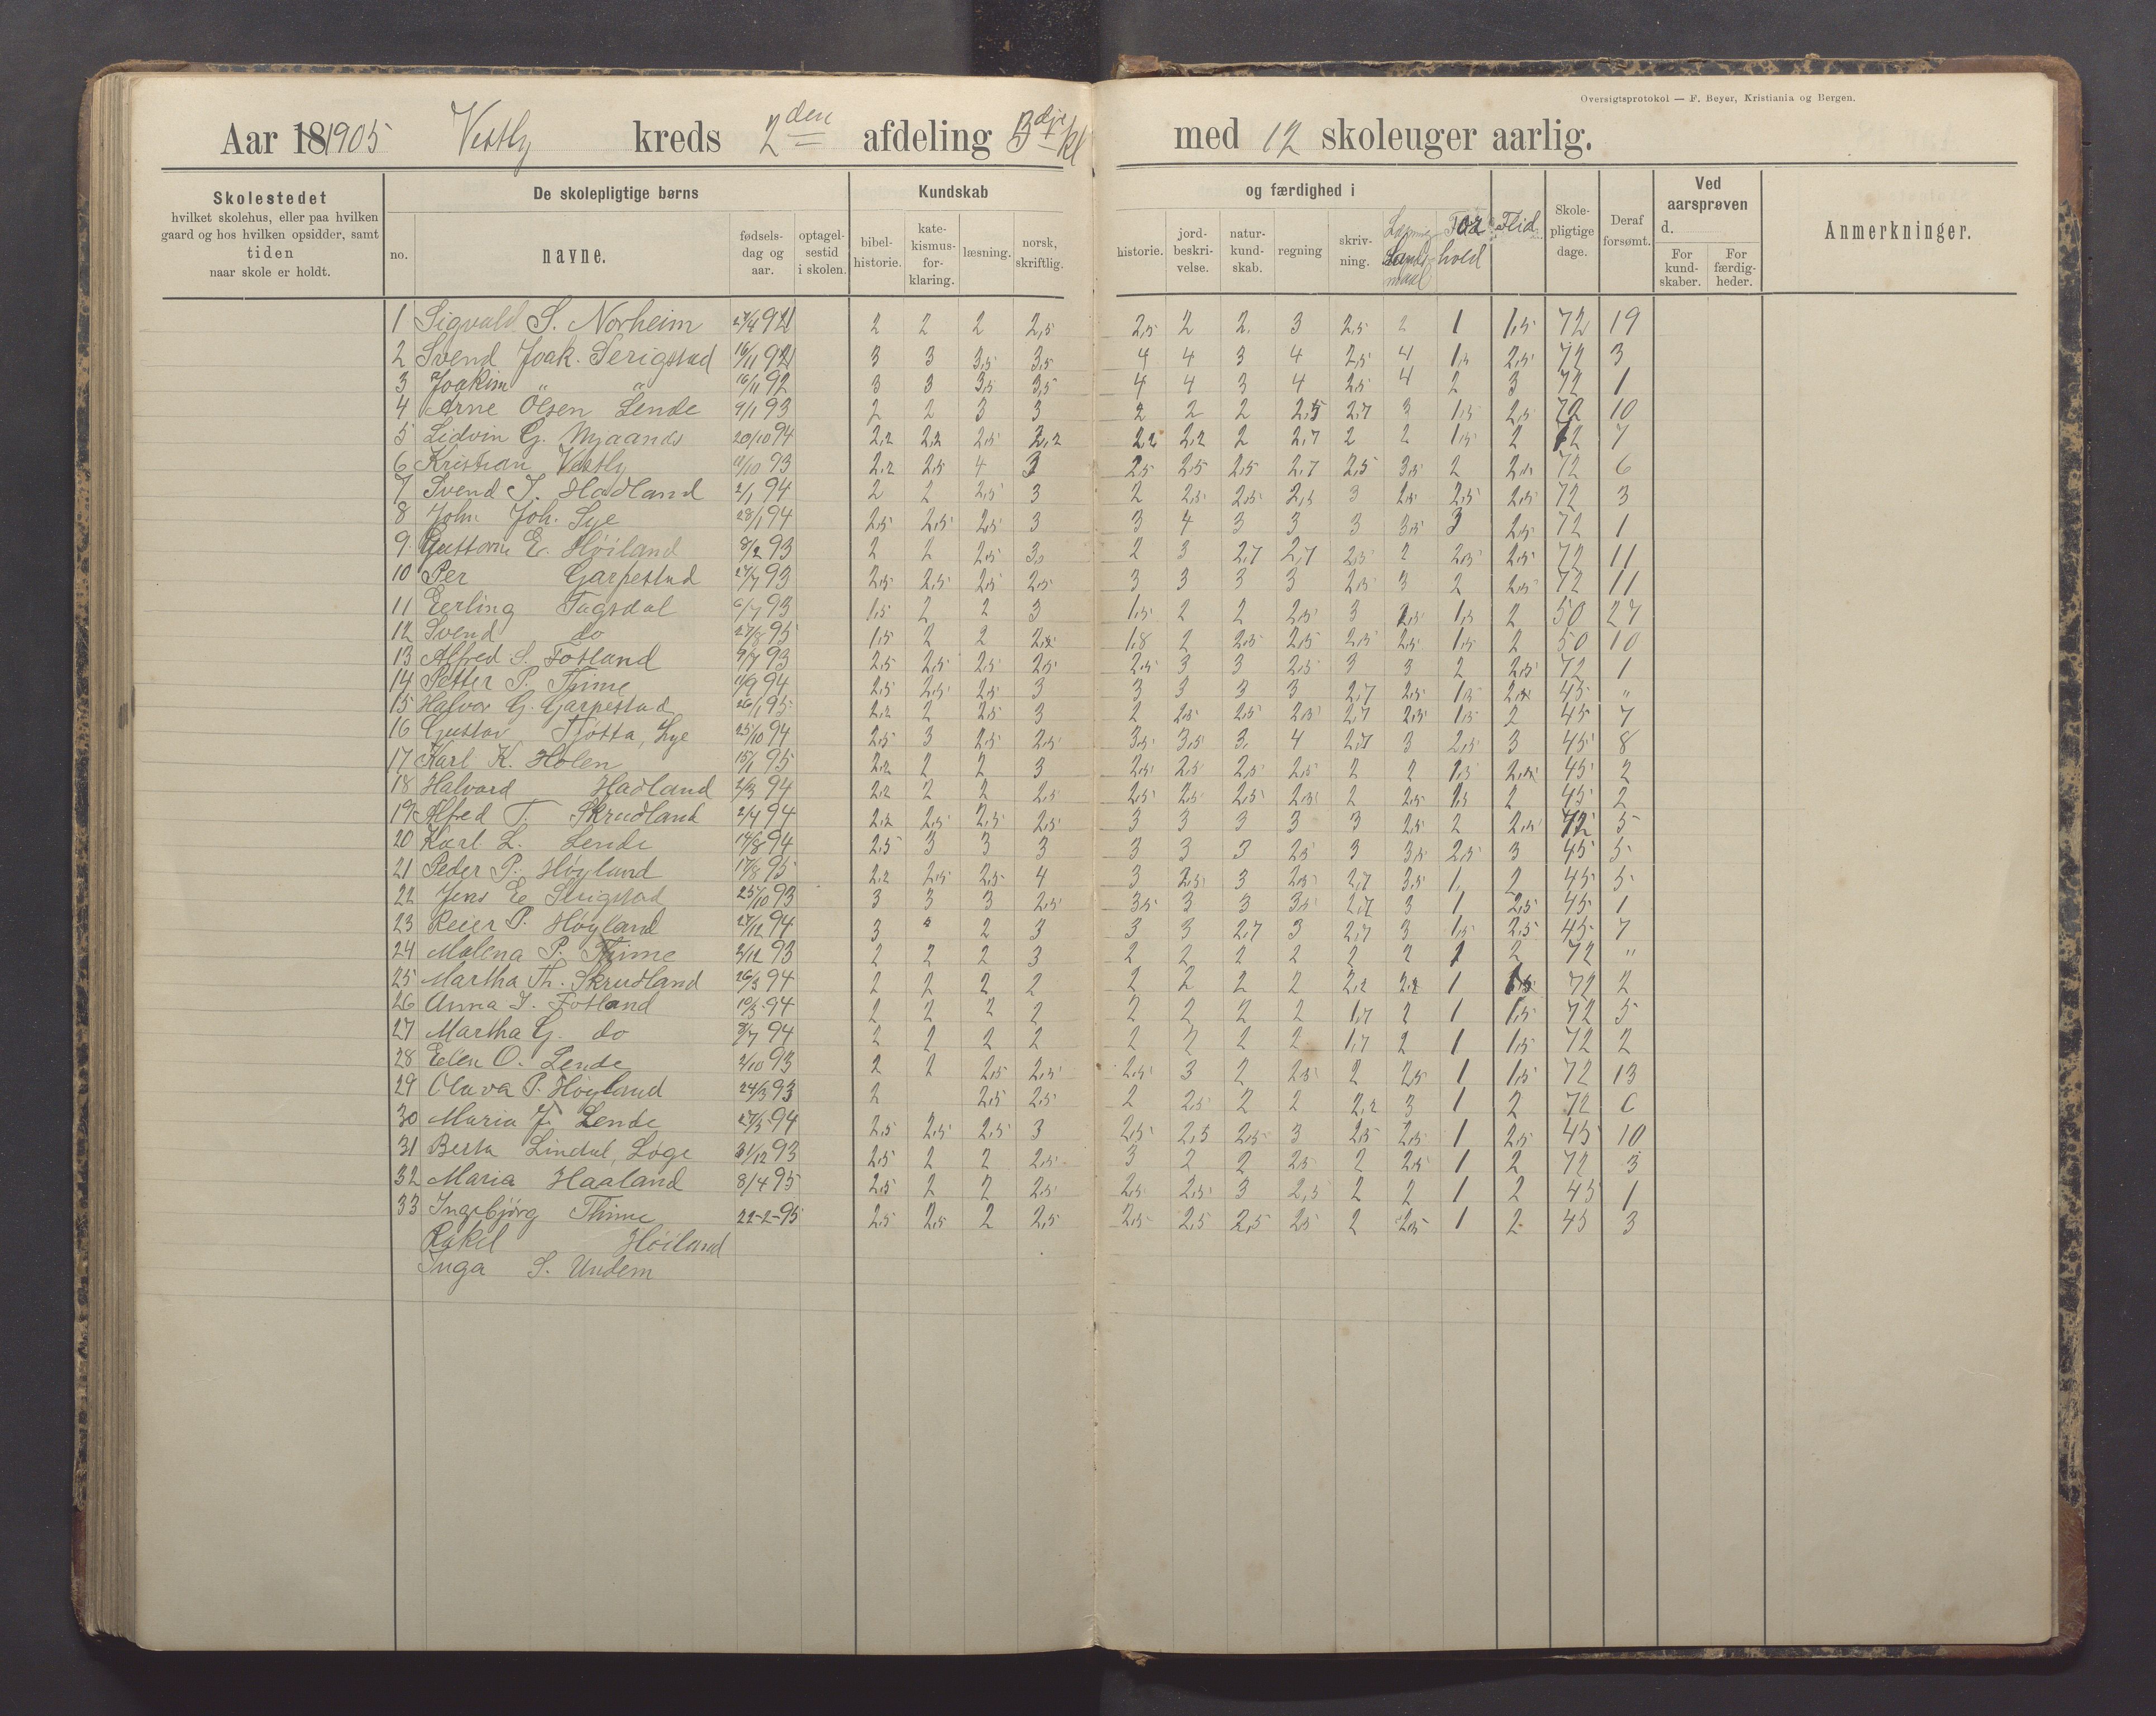 Oversigtsprotokol — F. Beyer, Kristiania og Bergen.
Aar 181905 Vestly kreds 2den afdeling 3dje kl med 12 skoleuger aarlig.
Skolestedet hvilket skolehus, eller paa hvilken gaard og hos hvilken opsidder, samt tiden naar skole er holdt.
De skolepligtige børns
Kundskab og færdighed i
no. navne. fødsels-dag og aar. optagel-sestid i skolen. bibel-historie. kate-kismus-for-klaring. læsning. norsk, skriftlig. historie. jord-beskri-velse. natur-kund-skab. regning skriv-ning. Landsmaal Forhold Flid Skole-pligtige dage. Deraf forsømt. Ved aarsprøven d. For kund-skaber. For færdig-heder. Anmerkninger.
1 Sigvald S. Norheim 27/4 92 2 2 2 2,5 2,5 2 2 3 2,5 2 1 1,5 72 19
2 Svend Joak. Serigstad 16/11 92 3 3 3,5 3,5 4 4 3 4 2,5 4 1,5 2,5 72 3
3 Joakim " " 16/11 92 3 3 3,5 3,5 4 4 3 4 2,5 4 2 3 72 1
4 Arne Olsen Lende 9/1 93 2 2 3 3 2 2 2 2,5 2,7 3 1,5 2,5 72 10
5 Lidvin G. Njaa 20/10 94 2,2 2,2 2,5 2,2 2,2 2,2 2 2,7 2 2 1,5 2 72 7
6 Kristian Vestly 11/10 93 2,2 2,5 4 3 2,5 2,5 2,5 2,7 2,5 3,5 2 2,5 72 6
7 Svend J. Hadland 2/1 94 2 2 2,5 3 2 2,5 2,5 2,5 3 2,5 2,5 2,5 72 3
8 John Joh. Lye 28/1 94 2,5 2,5 2,5 3 3 4 3 3 3 3,5 3 2,5 72 1
9 Guttorm E. Høiland 8/2 93 2 2 2,5 3 2 3 2,7 2,7 2,5 2 2,5 2,5 72 11
10 Per Garpestad 27/7 93 2,5 2,5 2,5 2,5 3 3 3 3 2,5 3 2 2,5 72 11
11 Eerling Fagsdal 6/7 93 1,5 2 2 3 1,5 2 2 2,5 3 2,5 1,5 2 50 27
12 Svend do 27/8 95 1,5 2 2 2,5 1,8 2 2,5 2,5 2,5 2,5 1,5 2 50 10
13 Alfred S. Fotland 9/7 93 2,5 2,5 2,5 2,5 2,5 3 3 2,5 3 3 2 2,5 72 1
14 Petter P. Thime 11/9 94 2,5 2,5 2,5 3 3 3 3 3 2,7 2,5 1,5 2,5 45 "
15 Halvor G. Garpestad 26/1 95 2,2 2 2,5 3 2 2,5 2,5 2,5 2,7 2,5 1,5 2 45 7
16 Gustav Tjøtta, Lye 25/10 94 2,5 3 2,5 2,5 3,5 3,5 3 4 2,7 3 2,5 3 45 8
17 Karl K. Holen 15/1 95 2,2 2 2 3 2,5 2,5 2,5 2,5 2 2 1,5 2,5 45 2
18 Halvard Hadland 2/3 94 2,2 2 2 2,5 2,5 2,5 2,5 2,5 2 2,5 1,5 2 45 2
19 Alfred T. Skrudland 2/4 94 2,2 2,5 2,5 2,5 3 3 3 3 3 2,5 2 2,5 72 5
20 Karl L. Lende 14/8 94 2,5 3 3 3 3 3 3 2,5 3 3,5 2,5 3 45 5
21 Peder P. Høyland 17/8 95 2,2 2,5 2,5 4 3 2,5 3 2,5 2,7 3,5 1 2 45 5
22 Jens E. Serigstad 25/10 93 3 3 3 2,5 3,5 3 3 3,5 2,7 3 1 2,5 45 1
23 Reier P. Høyland 27/12 94 3 " 2 3 3 3 2,7 3 2,7 3 1,5 2,5 45 7
24 Malena P. Thime 2/12 93 2 2 2 3 2 2 2 2 2 2 1 2 72 "
25 Martha Th. Skrudland 26/3 94 2 2 2 2 2 2 2 2 2,2 2,2 1 1,5 72 2
26 Anna J. Fotland 10/3 94 2 2 2 2 2 2 2 2 1,7 2 1 1,5 72 5
27 Martha G. do 9/7 94 2 2 2 2 2 2 2 2 1,7 2 1 1,5 72 2
28 Elen O. Lende 2/10 93 2 2 2,5 2,5 2,5 3 2 2,5 2 2,5 1 1,5 72 13
29 Olava P. Høyland 24/3 93 2 2,5 2,5 2 2,5 2 2 2,2 3 1 2 72 6
30 Maria J. Lende 27/5 94 2,5 2,5 2,5 3 2,5 2,5 2,5 3 2,5 2,5 1 2,5 45 10
31 Berta Lindal, Løge 31/12 93 2,5 2 2 2,5 3 2 2 2,5 2 2,5 1 2 72 3
32 Maria Haaland 8/4 95 2,5 2 2 2,5 2,5 2,5 3 2,5 2 2 1 2 45 1
33 Ingebjørg Thime 22-2-95 2,5 2,5 2 2,5 2,5 2,5 2,5 2,5 2 2,5 1 2 45 3
Rakel Høiland
Inga S. Undem